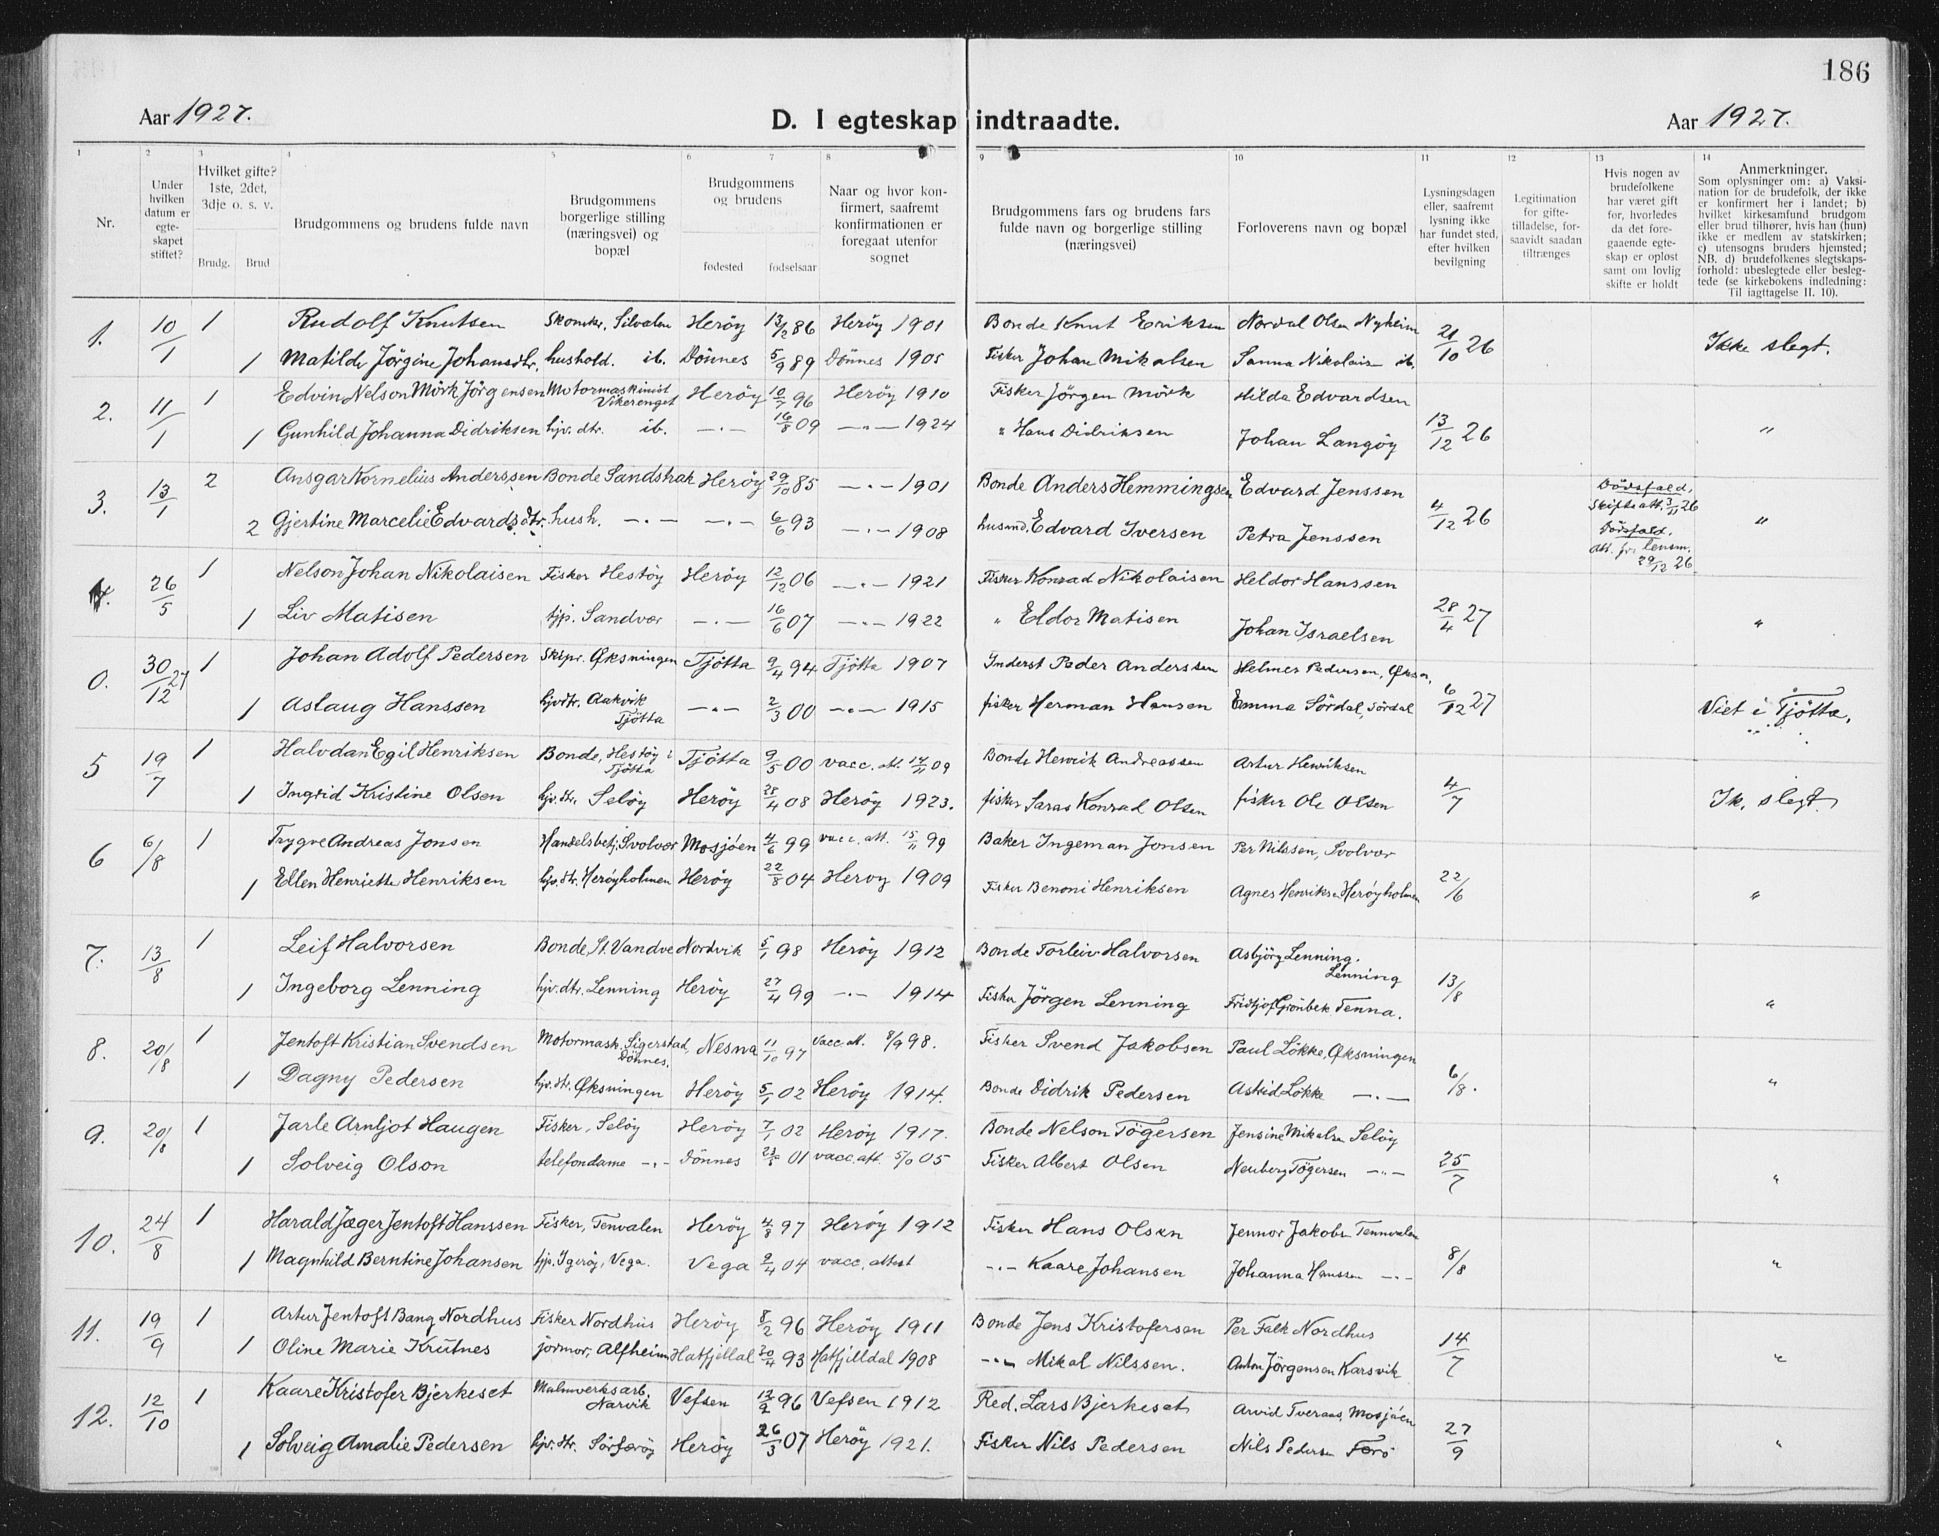 186
Aar 1927.
D. I egteskap indtraadte.
Aar 1927.
1 2 3 4 5 6 7 8 9 10 11 12 13 14
Nr.
Under hvilken datum er egte-skapet stiftet?
Hvilket gifte? 1ste, 2det, 3dje o. s. v.
Brudg. Brud
Brudgommens og brudens fulde navn
Brudgommens borgerlige stilling (næringsvei) og bopæl
Brudgommens og brudens
fødested fødselsaar
Naar og hvor kon-firmert, saafremt konfirmationen er foregaat utenfor sognet
Brudgommens fars og brudens fars fulde navn og borgerlige stilling (næringsvei)
Forloverens navn og bopæl
Lysningsdagen eller, saafremt lysning ikke har fundet sted, efter hvilken bevilgning
Legitimation for gifte-tilladelse, for-saavidt saadan tiltrænges
Hvis nogen av brudefolkene har været gift før, hvorledes da det fore-gaaende egte-skap er opløst samt om lovlig skifte er holdt
Anmerkninger.
Som oplysninger om: a) Vaksi-nation for de brudefolk, der ikke er konfirmert her i landet; b) hvilket kirkesamfund brudgom eller brud tilhører, hvis han (hun) ikke er medlem av statskirken; c) utensogns bruders hjemsted; NB. d) brudefolkenes slegtskaps-forhold: ubeslegtede eller besleg-tede (se kirkebokens indledning: Til iagttagelse II. 10).
1. 10/1 1 Rudolf Knutsen Skomker, Silvalen Herøy 13/2 86 Herøy 1901 Bonde Knut Eriksen Nordal Olsen Nyheim 21/10 26 Ikke slegt.
1 Matilde Jörgine Johansdtr. hushold. ib. Dönnes 5/9 89 Dönnes 1905 Fisker Johan Mikalsen Sanna Nikolaisen ib.
2. 11/1 1 Edvin Nelson Mörk Jörgensen Motormaskinist Vikerenget Herøy 10/7 96 Herøy 1910 Fisker Jörgen Mörk Hilda Edvardsen 13/12 26 "
1 Gunhild Johanna Didriksen hjv. dtr. ib. —"— 16/8 09 —"— 1924 " Hans Didriksen Johan Langöy
3. 13/1 2 Ansgar Kornelius Anderssen Bonde Sandshak Herøy 29/10 85 —"— 1901 Bonde Anders Hemmingsen Edvard Jenssen 4/12 26 Dödsfald, Skifteatt. 3/11 26 "
2 Gjertine Marcelie Edvardsdtr. hush. —"— —"— 6/6 93 —"— 1908 husmd. Edvard Iversen Petra Jenssen Dödsfald, att. fr. lensm. 29/12 26
4. 26/5 1 Nelson Johan Nikolaisen Fisker Hestöy Herøy 12/12 06 —"— 1921 Fisker Konrad Nikolaisen Heldor Hanssen 28/4 27 "
1 Liv Matisen tjp. Sandvær —"— 16/6 07 —"— 1922 " Eldor Matisen Johan Israelsen
0. 30/12 27 1 Johan Adolf Pedersen Skipr. Øksningen Tjötta 9/4 94 Tjötta 1907 Inderst Peder Anderssen Helmer Pedersen, Øksn. 6/12 27 Viet i Tjötta.
1 Aslaug Hanssen hjvdtr. Aakvik Tjötta —"— 2/3 00 —"— 1915 fisker Herman Hansen Emma Sördal, Sördal
5 19/7 1 Halvdan Egil Henriksen Bonde, Hestöy i Tjötta Tjötta 9/5 00 vacc. att. 14/11 09 Bonde Henrik Andreassen Artur Henriksen 4/7 Ik. slegt.
1 Ingrid Kristine Olsen hjv. dtr. Selöy Herøy 28/4 08 Herøy 1923. fisker Saras Konrad Olsen fisker Ole Olsen
6 6/8 1 Trygve Andreas Jonsen Handelsbetj. Svolvær Mosjöen 4/6 99 vacc. att. 15/11 99 Baker Ingeman Jonsen Per Nilssen, Svolvær 22/6 "
1 Ellen Henriette Henriksen hjv. dtr. Herøyholmen Herøy 22/8 04 Herøy 1909 Fisker Benoni Henriksen Agnes Henriksen Herøyholmen
7. 13/8 1 Leif Halvorsen Bonde, St. Vandve Nordvik 5/1 98 Herøy 1912 Bonde Torleiv Halvorsen Asbjörg Lenning. Lenning 13/8 "
1 Ingeborg Lenning hjv. dtr. Lenning Herøy 27/4 99 —"— 1914 Fisker Jörgen Lenning Fridtjof Grönbek Tenna.
8. 20/8 1 Jentoft Kristian Svendsen Motormask. Sigerstad, Dönnes. Nesna 11/10 97 Vacc. att. 8/9 98. Fisker Svend Jakobsen Paul Lökke, Øksningen 6/8. "
1 Dagny Pedersen hjv. dtr. Øksningen Herøy 5/1 02 Herøy 1914. Bonde Didrik Pedersen Astrid Lökke —"—
9. 20/8 1 Jarle Arnljot Haugen Fisker, Selöy Herøy 7/1 02 Herøy 1917. Bonde Nelson Tögersen Jensine Mikalsen Selöy 25/7 "
1 Solveig Olson telefondame —"— Dönnes 01 vacc. att. 05 Fisker Albert Olsen Neuberg Tögersen —"—
10. 24/8 1 Harald Jæger Jentoft Hanssen Fisker, Tenvalen Herøy 4/8 97 Herøy 1912 Fisker Hans Olsen Jennor Jakobsen Tennvalen 8/8 "
1 Magnhild Berntine Johansen tjp. Igeröy, Vega. Vega 9/4 04 vacc. attest —"— Kaare Johansen Johanna Hanssen —"—
11. 19/9 1 Artur Jentoft Bang Nordhus Fisker Nordhus Herøy 8/2 96 Herøy 1911 Bonde Jens Kristofersen Per Falk Nordhus 14/7 "
1 Oline Marie Krutnes jordmor, Alfheim Hatfjeldal 20/4 93 Hatfjelldal 1908 —"— Mikal Nilssen. Anton Jörgensen Karsvik
12. 12/10 1 Kaare Kristofer Bjerkeset Malmverksarb. Narvik Vefsen 13/2 96 Vefsen 1912 Red. Lars Bjerkeset Arvid Tveraas, Mosjöen 27/9 "
1 Solveig Amalie Pedersen hjv. dtr. Sörfærøy Herøy 26/3 07 Herøy 1921. Fisker Nils Pedersen Nils Pedersen Færö